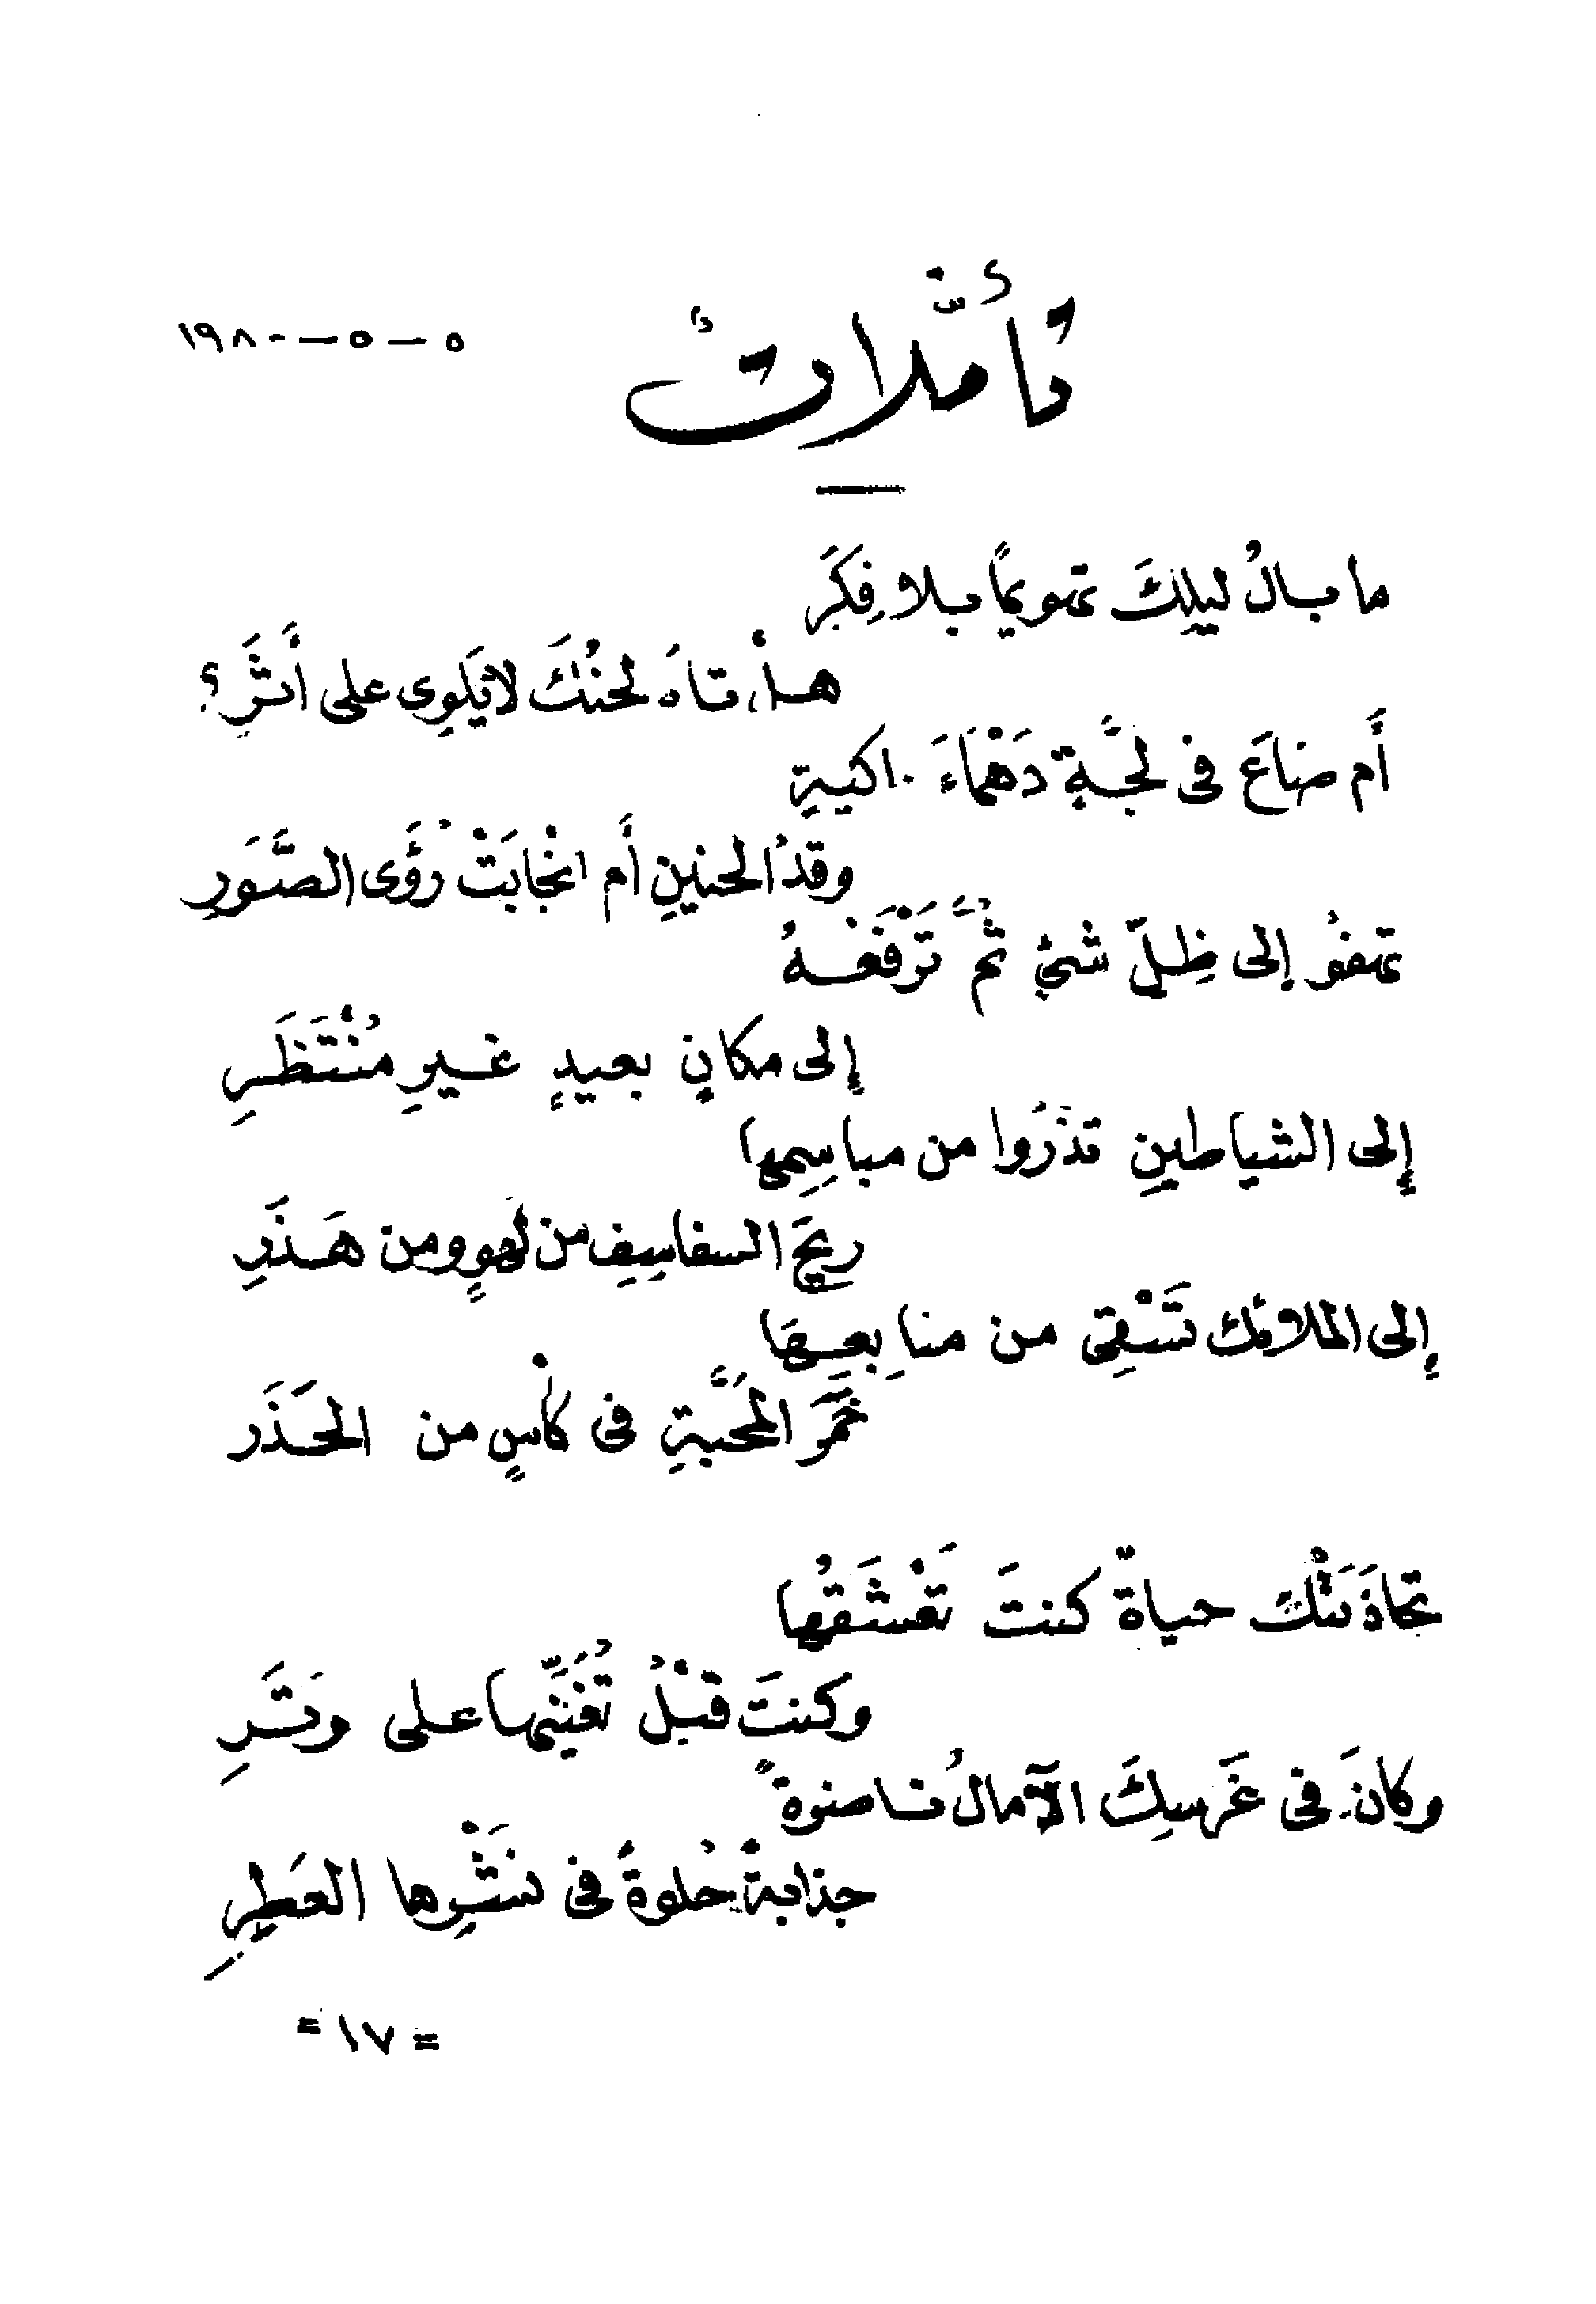 تأمّلاتٌ
٥ - ٥ - ١٩٨٠
ما بالُ ليلِكَ تهويمًا بلا فِكَرِ
هل تاهَ لحنُكَ لا يَلوِى على أَثَرِ؟
أَم ضاعَ فى لُجَّةٍ دَهْمَاءَ
وقدُ الحنينِ أَم انْجابَتْ رُؤَى الصُّوَرِ
تهفو إلى ظِلِّ شىءٍ ثُمَّ تَرْفَعُهُ
إلى مكانٍ بعيدٍ غيرِ مُنْتَظَرِ
إلى الشياطينِ تذْرُوا من مباسِمِها
ريحَ السفاسِفِ من لهوٍ ومن هَذَرِ
إلى الملائك تَسْقِى من منابِعِهَا
خَمْرَ المَحَبَّةِ فى كأْسٍ من الحَذَر
تجاذَبَتْكَ حياةٌ كنتَ تَعْشَقُها
وكنتَ قبْلُ تُغَنِّيها على وَتَرِ
وكانَ فى غَرسِكَ الآمالُ
جذابةً حُلوةً فى نَشْرِها العَطِرِ
= ١٧ =